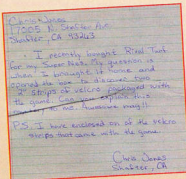 Chris Jones
17005 N. Steffen Ave.
Shafter, CA 93263
I recently bought Rival Turf
for my Super Nes. My question is
when I brought it home and
opened the box to discover two
3" strips of velcro packaged with
the game. Can you explain this
to me. Awesome mag!!
P.S. I have enclosed one of the velcro
strips that came with the game.
Chris Jones
Shafter, CA